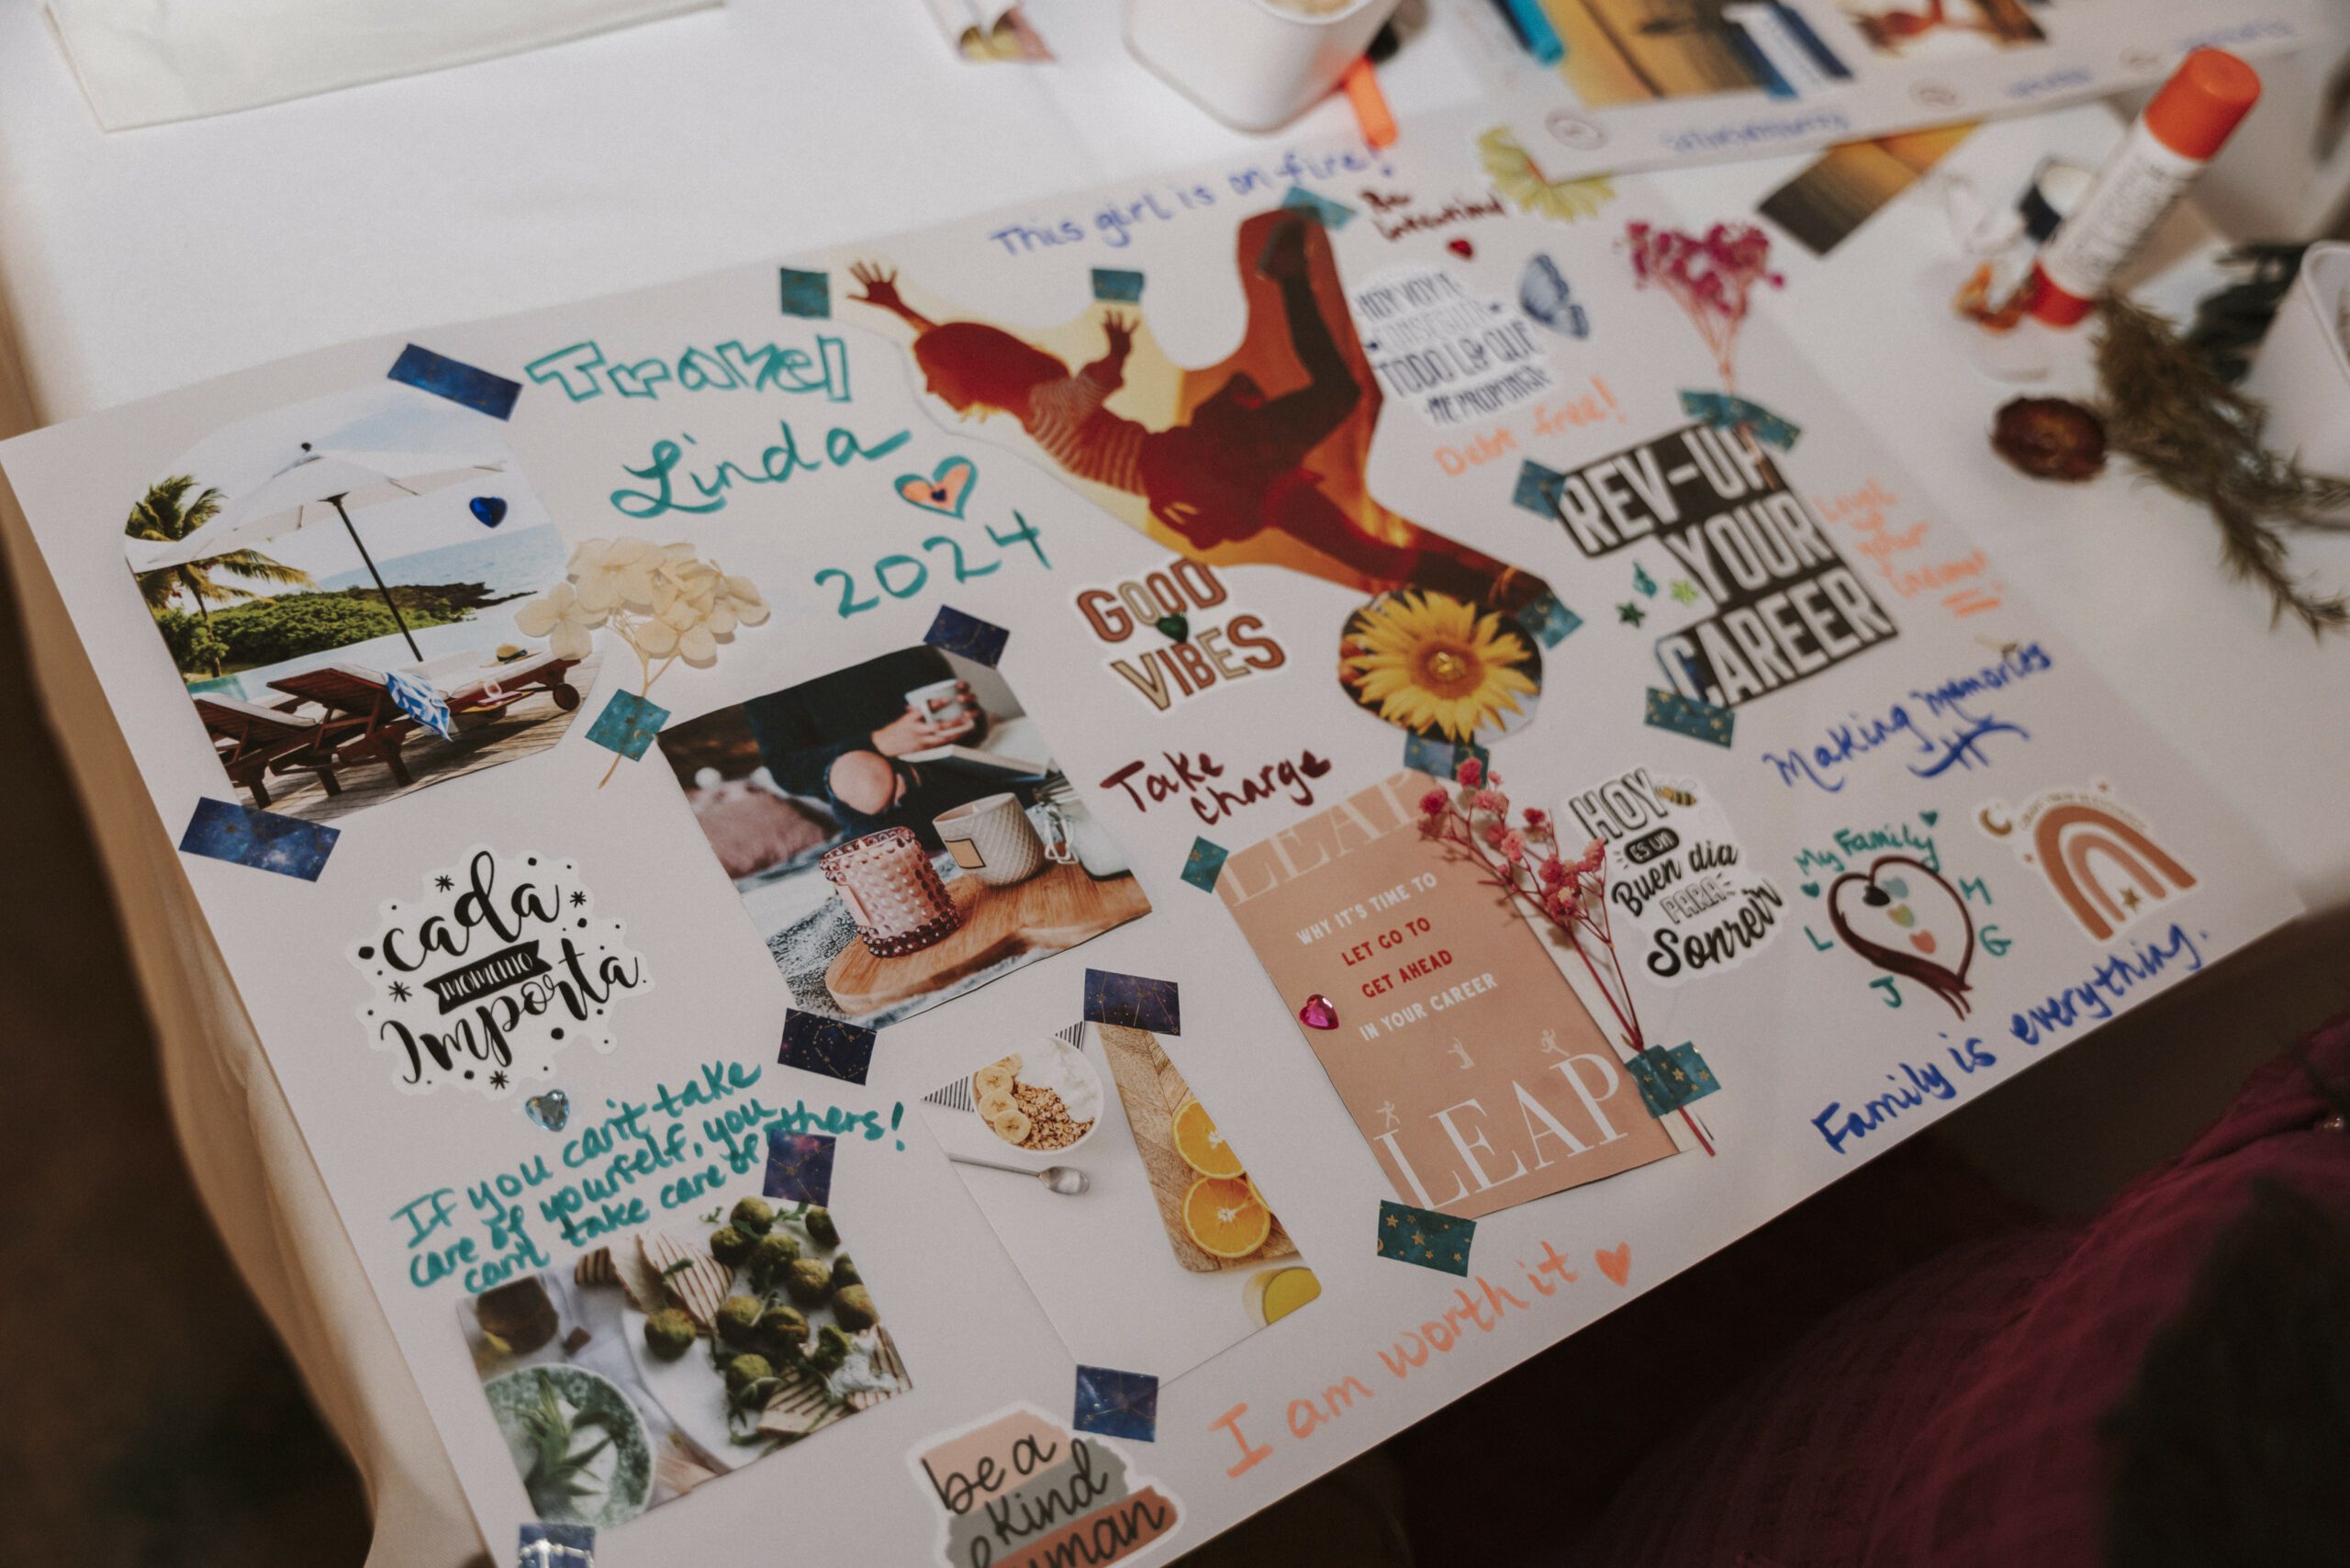 This girl is on fire!
Be
intentional
Travel
Linda
2024
HOY VOY A
CONSEGUIR
TODO LO QUE
ME PROMONGA
Debt free!
REV-UP
YOUR
CAREER
GOOD
VIBES
Making memories
Take
charge
LEAP
WHY IT'S TIME TO
LET GO TO
GET AHEAD
IN YOUR CAREER
LEAP
HOY
ES UN
Buen dia
PARA
Sonreir
My Family
L
J
G
M
Family is everything.
cada
momento
Importa
If you can't take
care of yourself, you
can't take care of others!
I am worth it
be a
kind
human